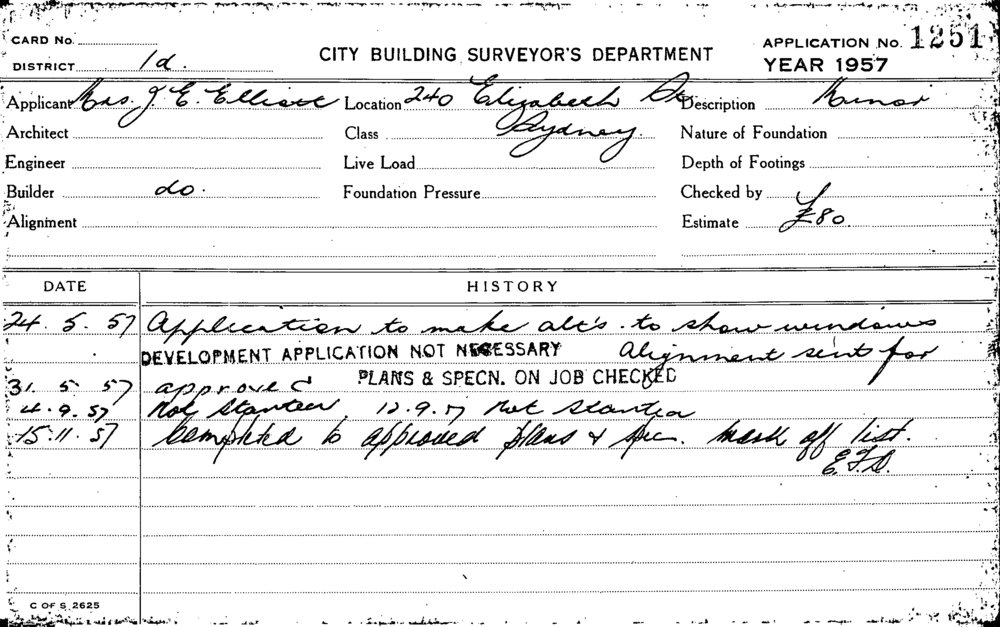 CARD No.
DISTRICT 1d.
CITY BUILDING SURVEYOR'S DEPARTMENT
APPLICATION No. 1251
YEAR 1957
Applicant Mrs J. E. Elliott Location 240 Elizabeth St Description Minor
Architect Class Sydney. Nature of Foundation
Engineer Live Load Depth of Footings
Builder do. Foundation Pressure Checked by
Alignment Estimate £80.
DATE HISTORY
24. 5. 57 Application to make alt's. to show windows
DEVELOPMENT APPLICATION NOT NECESSARY Alignment sent for
31. 5 57 approved PLANS & SPECN. ON JOB CHECKED
4.9.57 Not Started. 12.9.57 Not Started
15.11.57 Completed to approved plans & spec. mark off list.
C OF S 2625